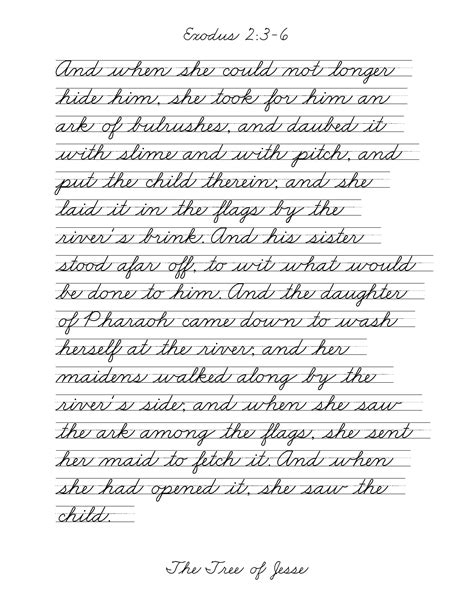 Exodus 2:3-6
And when she could not longer
hide him, she took for him an
ark of bulrushes, and daubed it
with slime and with pitch, and
put the child therein; and she
laid it in the flags by the
river's brink. And his sister
stood afar off, to wit what would
be done to him. And the daughter
of Pharaoh came down to wash
herself at the river; and her
maidens walked along by the
river's side; and when she saw
the ark among the flags, she sent
her maid to fetch it. And when
she had opened it, she saw the
child.
The Tree of Jesse